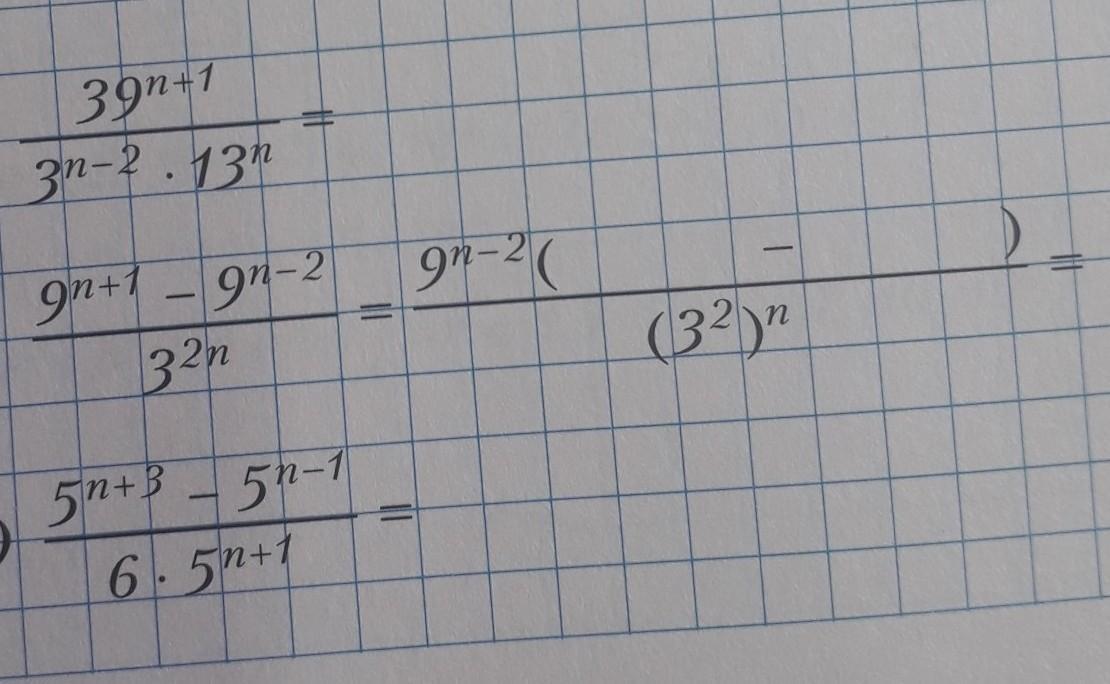 39ⁿ⁺¹ / (3ⁿ⁻² · 13ⁿ) =
(9ⁿ⁺¹ – 9ⁿ⁻²) / 3²ⁿ = 9ⁿ⁻²( – ) / (3²)ⁿ =
) (5ⁿ⁺³ – 5ⁿ⁻¹) / (6 · 5ⁿ⁺¹) =